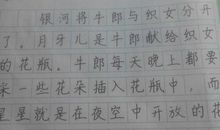 银河将牛郎与织女分开
了。月牙儿是牛郎献给织女
的花瓶。牛郎每天晚上都要
采一些花朵插入花瓶中，而
星星就是在夜空中开放的花